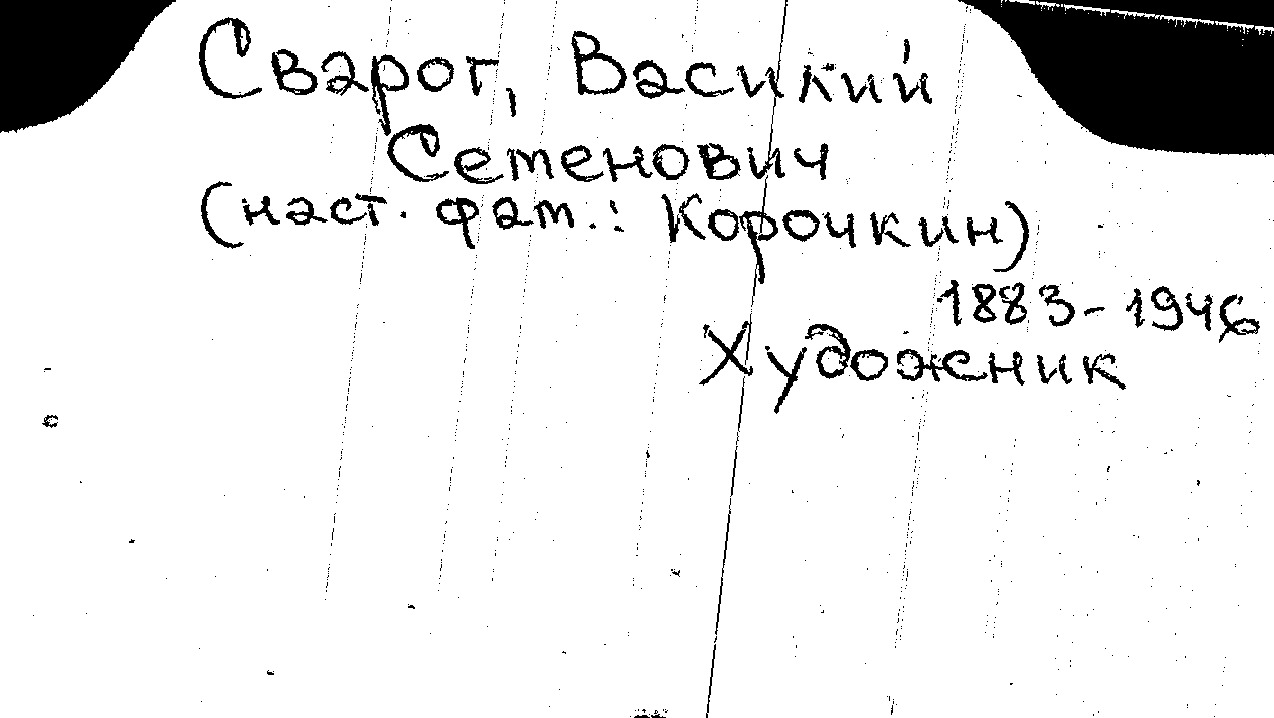 Сварог, Василий
Семенович
(наст. фам.: Корочкин)
1883-1946
Художник